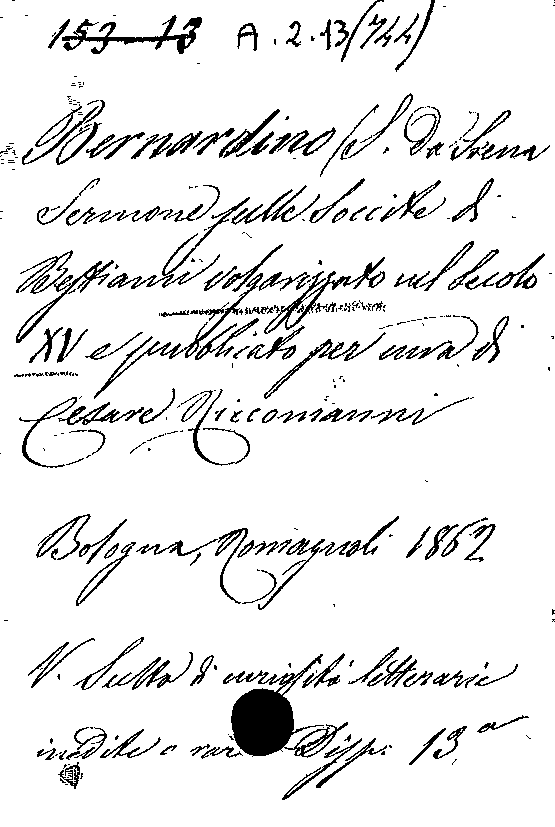 153-13 A.2.13(744)
Bernardino (S. da Siena
Sermone sulle Soccite di
Bestiami volgarizzato nel Secolo
XV e pubblicato per cura di
Cesare Riccomanni
Bologna, Romagnoli 1862
V. Scelta di curiosità letterarie
inedite o rare Disp. 13.a